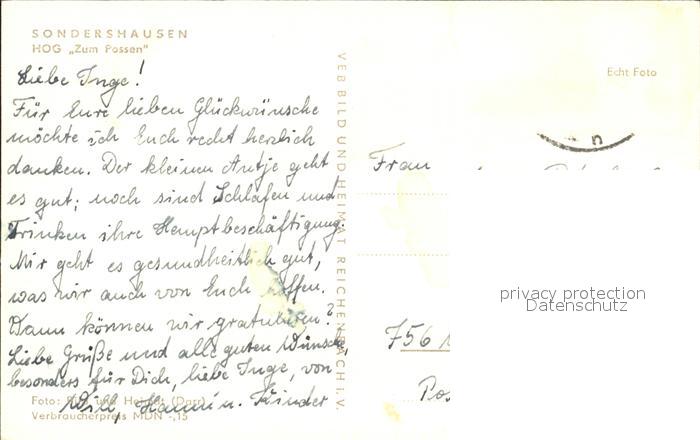 SONDERSHAUSEN
HOG „Zum Possen"
Liebe Inge!
Für Eure lieben Glückwünsche
möchte ich Euch recht herzlich
danken. Der kleinen Antje geht
es gut; noch sind Schlafen und
Trinken ihre Hauptbeschäftigung.
Mir geht es gesundheitlich gut,
was wir auch von Euch hoffen.
Wann können wir gratulieren?
Liebe Grüße und alle guten Wünsche,
besonders für Dich, liebe Inge, von
Willi, Hanni u. Kinder
Foto: Bild und Heimat (Darr)
Verbraucherpreis MDN -,15
VEB BILD UND HEIMAT REICHENBACH i. V.
Echt Foto
Frau
756
privacy protection
Datenschutz